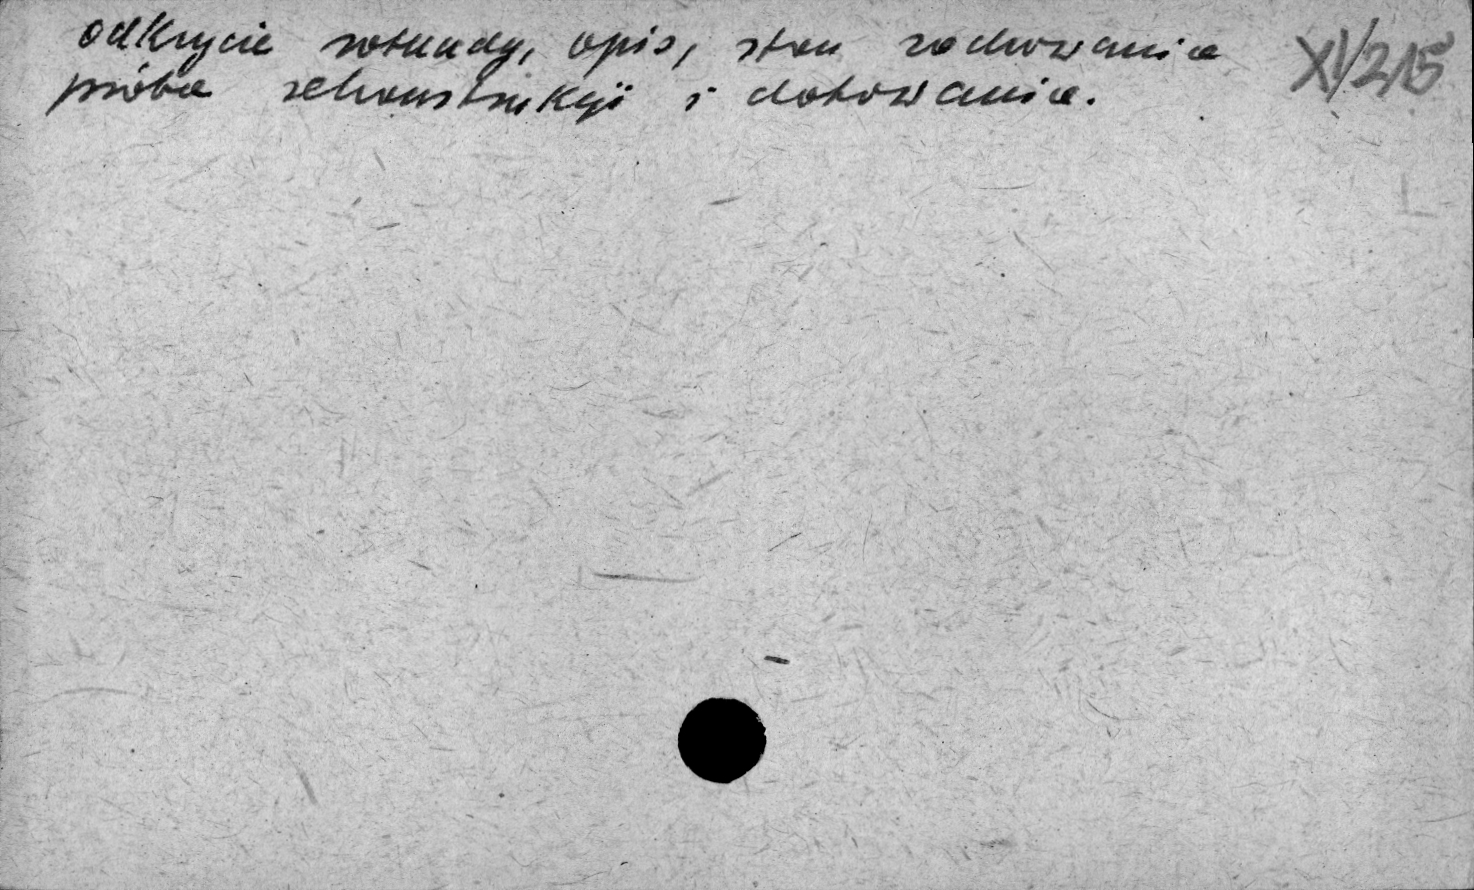 odkrycie rotundy, opis, stan zachowania XI/215
próba rekonstrukcji i datowania.